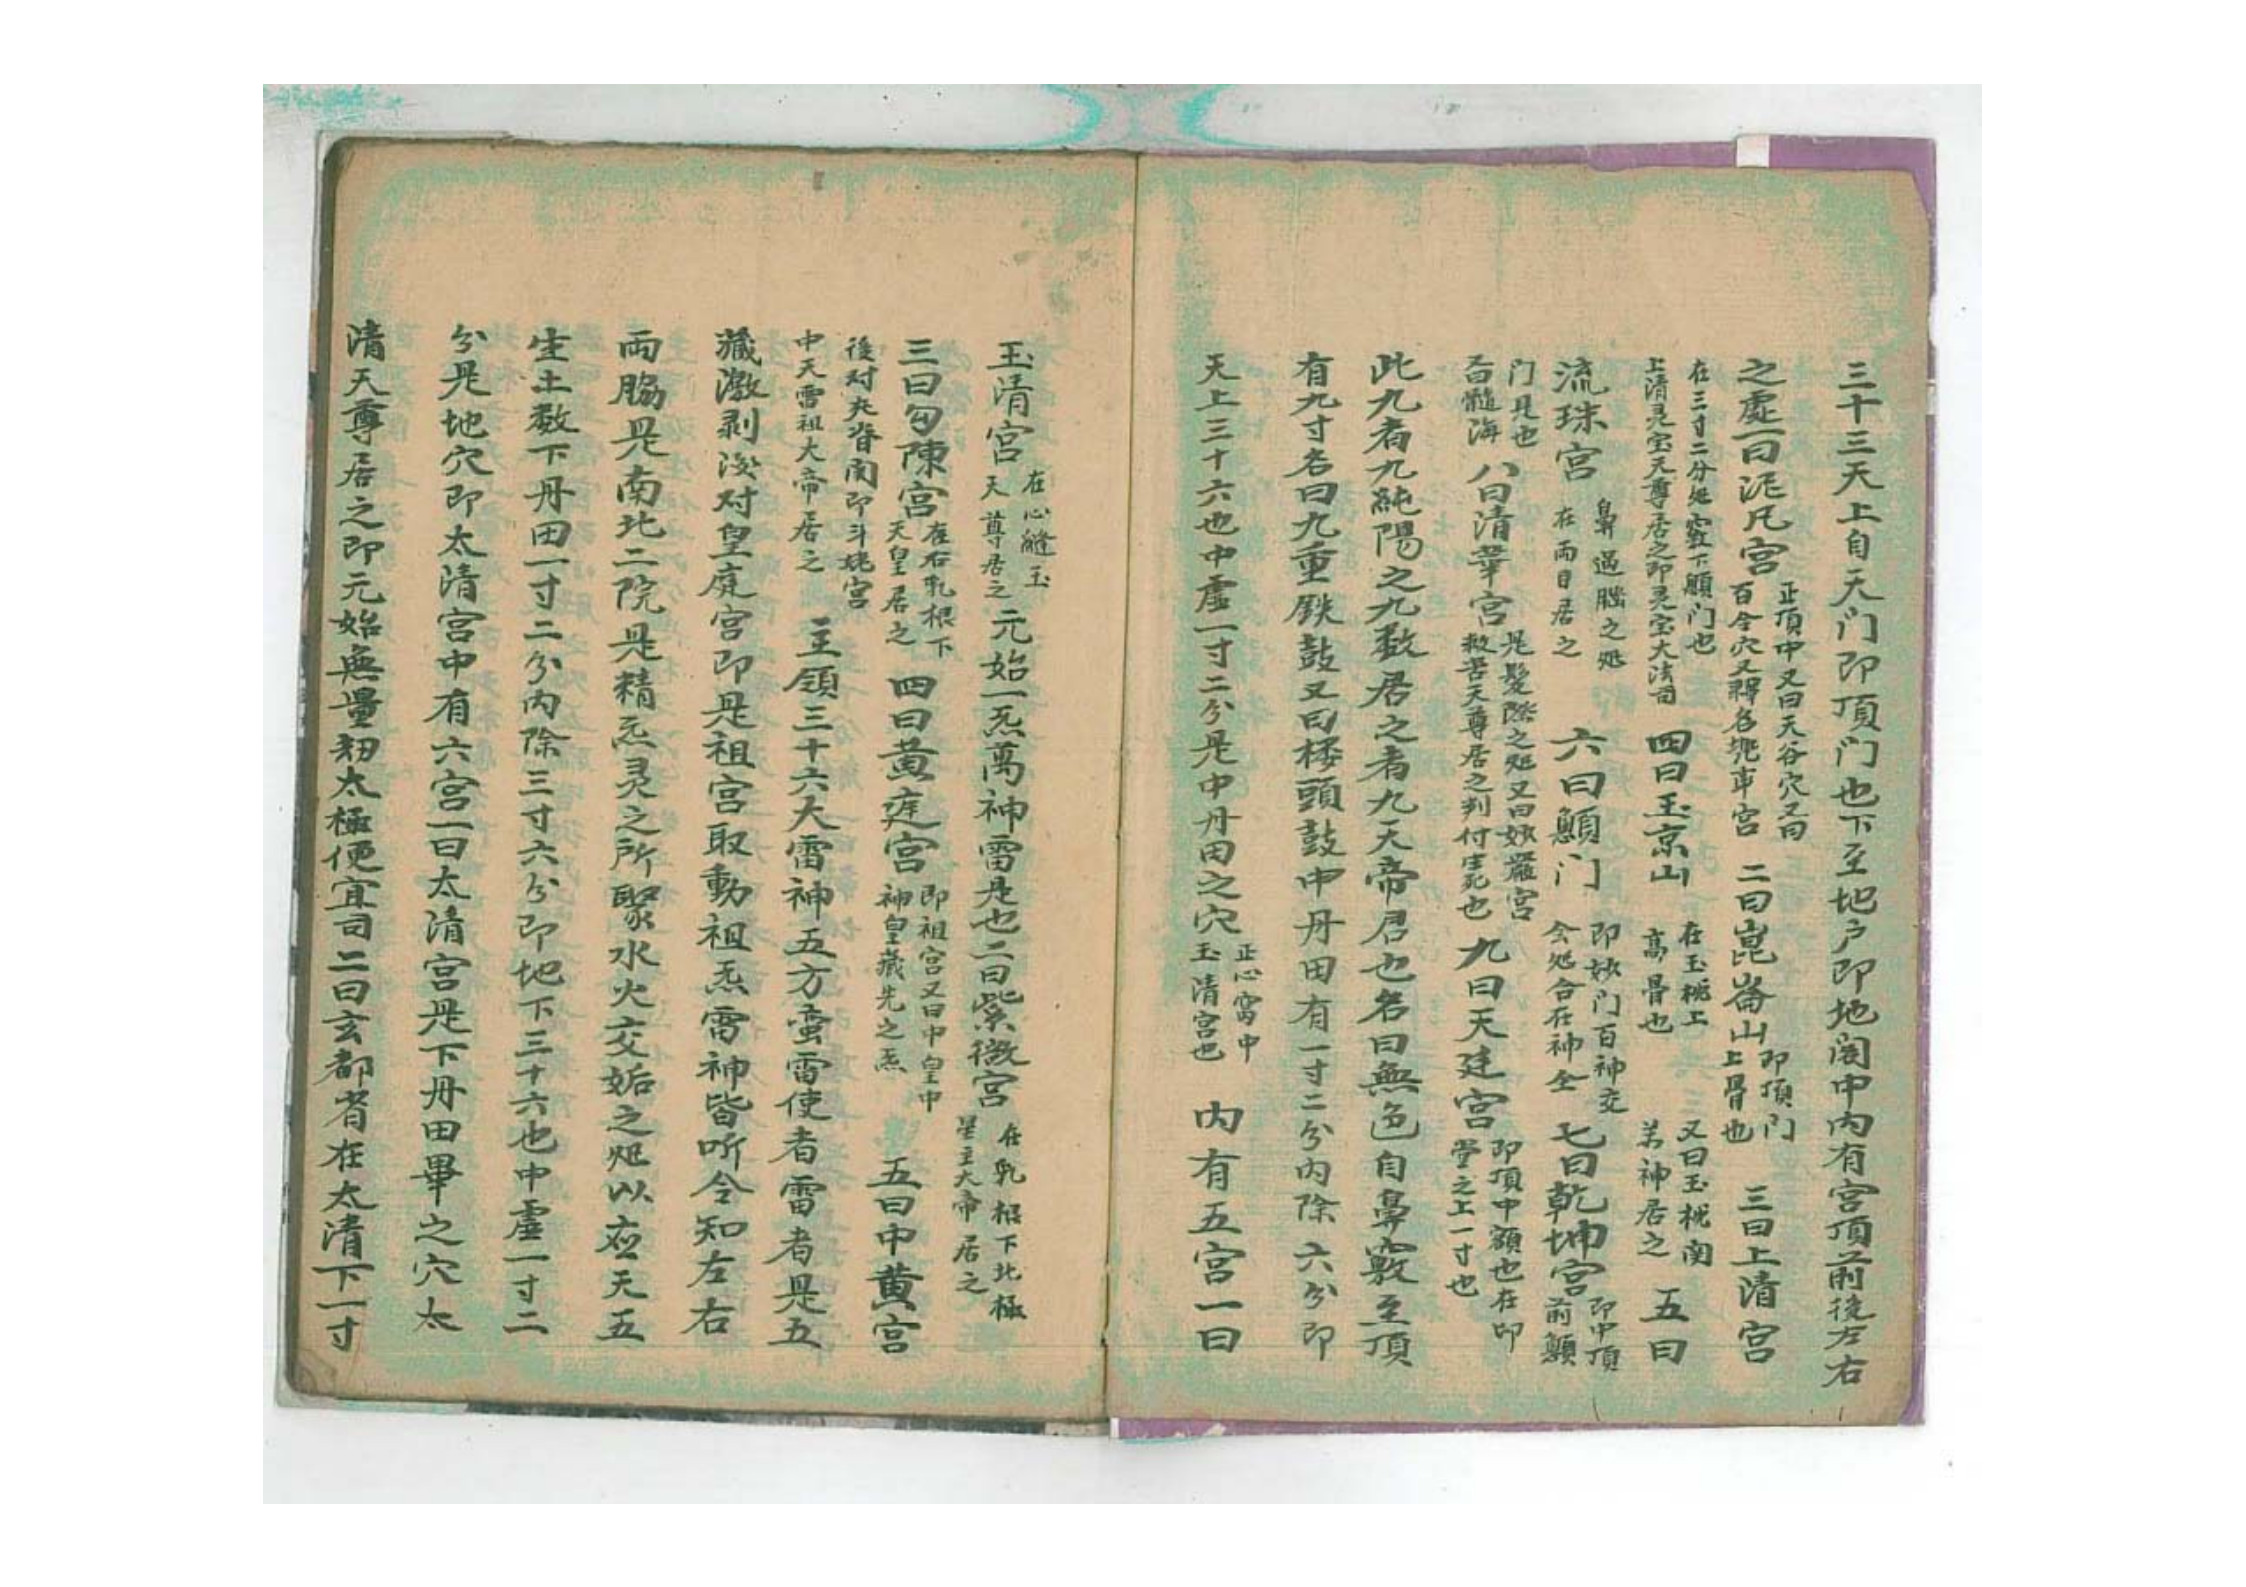 三十三天上自天门即頂门也下至地户即地阁中内有宫頂前後左右
之處一曰泥凡宫 正頂中又曰天谷穴又曰百令穴又釋名兜率宫 二曰崑崙山 即頂门上骨也 三曰上清宫
在三寸二分处窍下顖门也上清灵宝天尊居之即灵宝大法司 四曰玉京山 在玉桄上高骨也 又曰玉桄南若神居之 五曰
流珠宫 鼻過腦之処在両目居之 六曰顖门 即妙门百神交会処合在神全 七曰乾坤宫 即中頂前顖
门是也又曰髓海 八曰清華宫 是髪際之処又曰妙嚴宫救苦天尊居之判付生死也 九曰天廷宫 即頂中額也在印堂之上一寸也
此九者九純陽之九数居之者九天帝君也名曰無色自鼻竅至頂
有九寸名曰九重鉄鼓又曰楼頭鼓中丹田有一寸二分内除六分即
天上三十六也中虚一寸二分是中丹田之穴 正心窩中玉清宫也 内有五宫一曰
玉清宫 在心縫玉天尊居之 元始一炁萬神雷是也二曰紫微宫 在乳根下北極星主大帝居之
三曰勾陳宫 在右乳根下天皇居之 四曰黄庭宫 即祖宫又曰中皇中神皇藏先之炁 五曰中黄宫
後对夾脊関即斗姥宫中天雷祖大帝居之 主領三十六大雷神五方蛮雷使者雷者是五
藏激剥後对皇庭宫即是祖宫取動祖炁雷神皆听令知左右
両脇是南北二院是精炁灵之所聚水火交姤之処以应天五
生土数下丹田一寸二分内除三寸六分即地下三十六也中虚一寸二
分是地穴即太清宫中有六宫一曰太清宫是下丹田畢之穴太
清天尊居之即元始無量刼太極便宜司二曰玄都者在太清下一寸